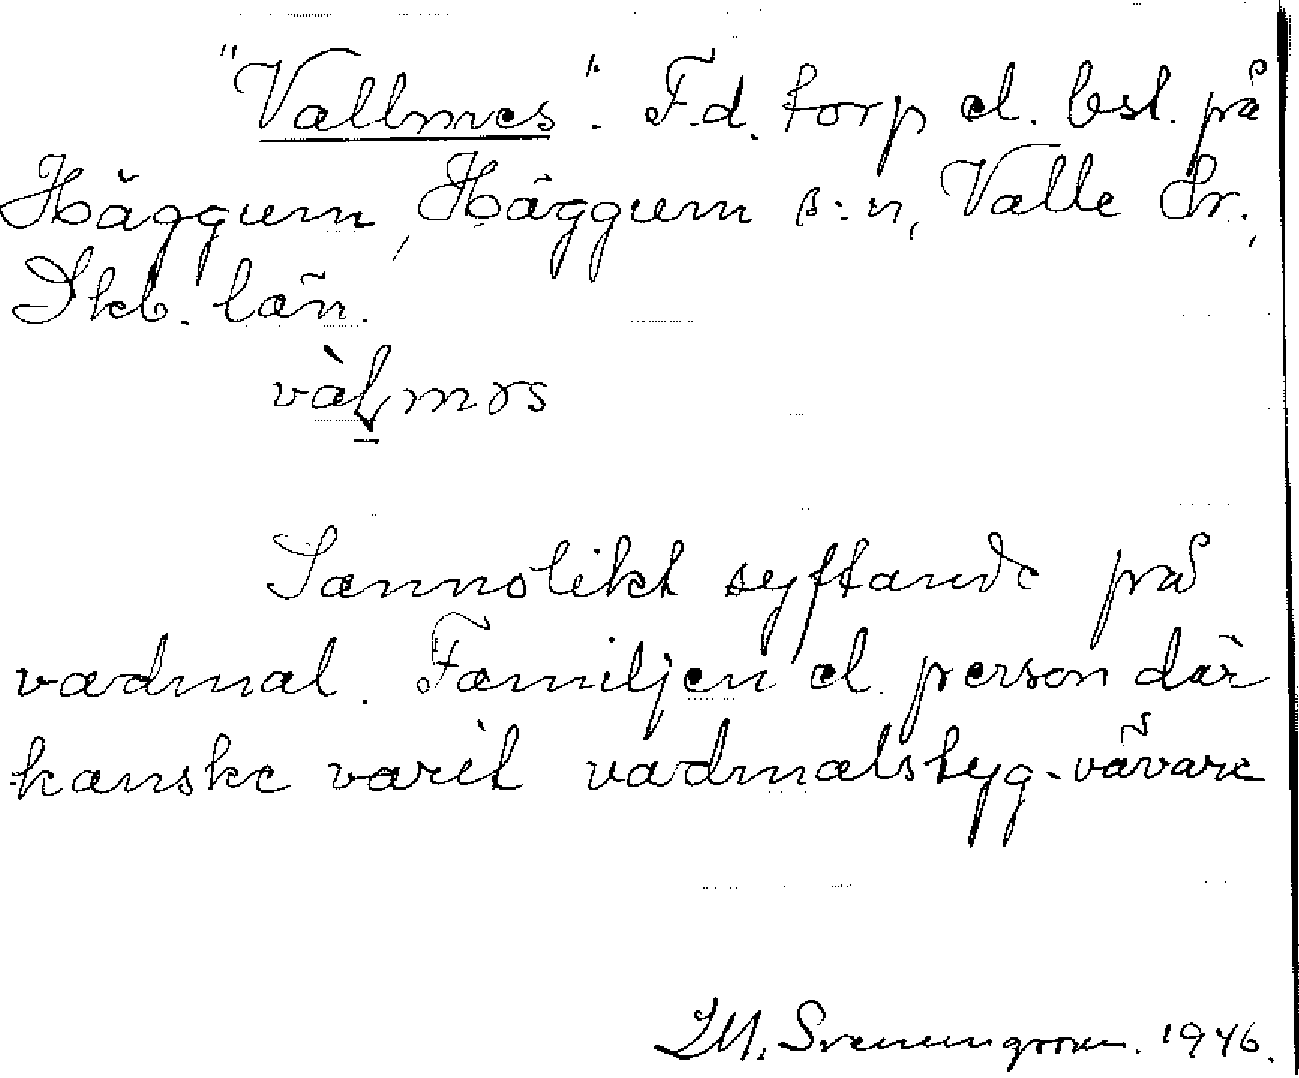 "Vallmes". F.d. torp el. bsl. på
Häggum, Häggum s:n, Valle Hr.,
Skb. län.
Sannolikt syftande på
vadmal. Familjen el. person där
kanske varit vadmalstyg-vävare
1946.